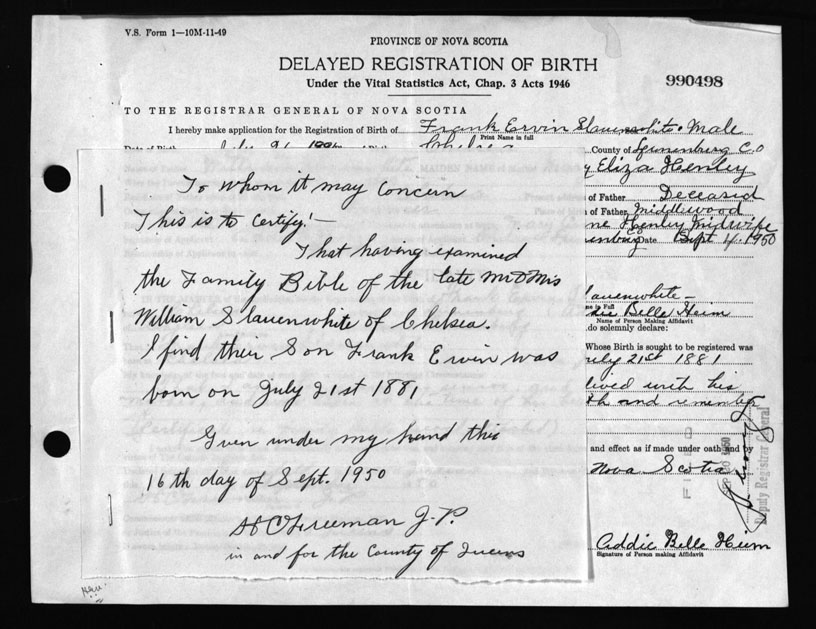 V.S. Form 1—10M-11-49
PROVINCE OF NOVA SCOTIA
DELAYED REGISTRATION OF BIRTH
Under the Vital Statistics Act, Chap. 3 Acts 1946
990498
TO THE REGISTRAR GENERAL OF NOVA SCOTIA
I hereby make application for the Registration of Birth of Frank Ervin Slauenwhite Male
Print Name in full
Chelsea County of Lunenburg Co
Eliza Henley
of Father Deceased
of Father Middlewood
Henley Midwife
Date Sept 4 1950
To whom it may Concern
This is to certify:—
That having examined
the Family Bible of the late Mr & Mrs
William Slauenwhite of Chelsea.
I find their Son Frank Ervin was
born on July 21st 1881
Given under my hand this
16th day of Sept. 1950
H C Freeman J.P.
in and for the County of Queens
Slauenwhite
Addie Belle Heim
Name of Person Making Affidavit
do solemnly declare:
Whose Birth is sought to be registered was
July 21st 1881
lived with his
and remember
and effect as if made under oath and by
Nova Scotia
FILED
SEP 1950
Deputy Registrar General
Addie Belle Heim
Signature of Person making Affidavit